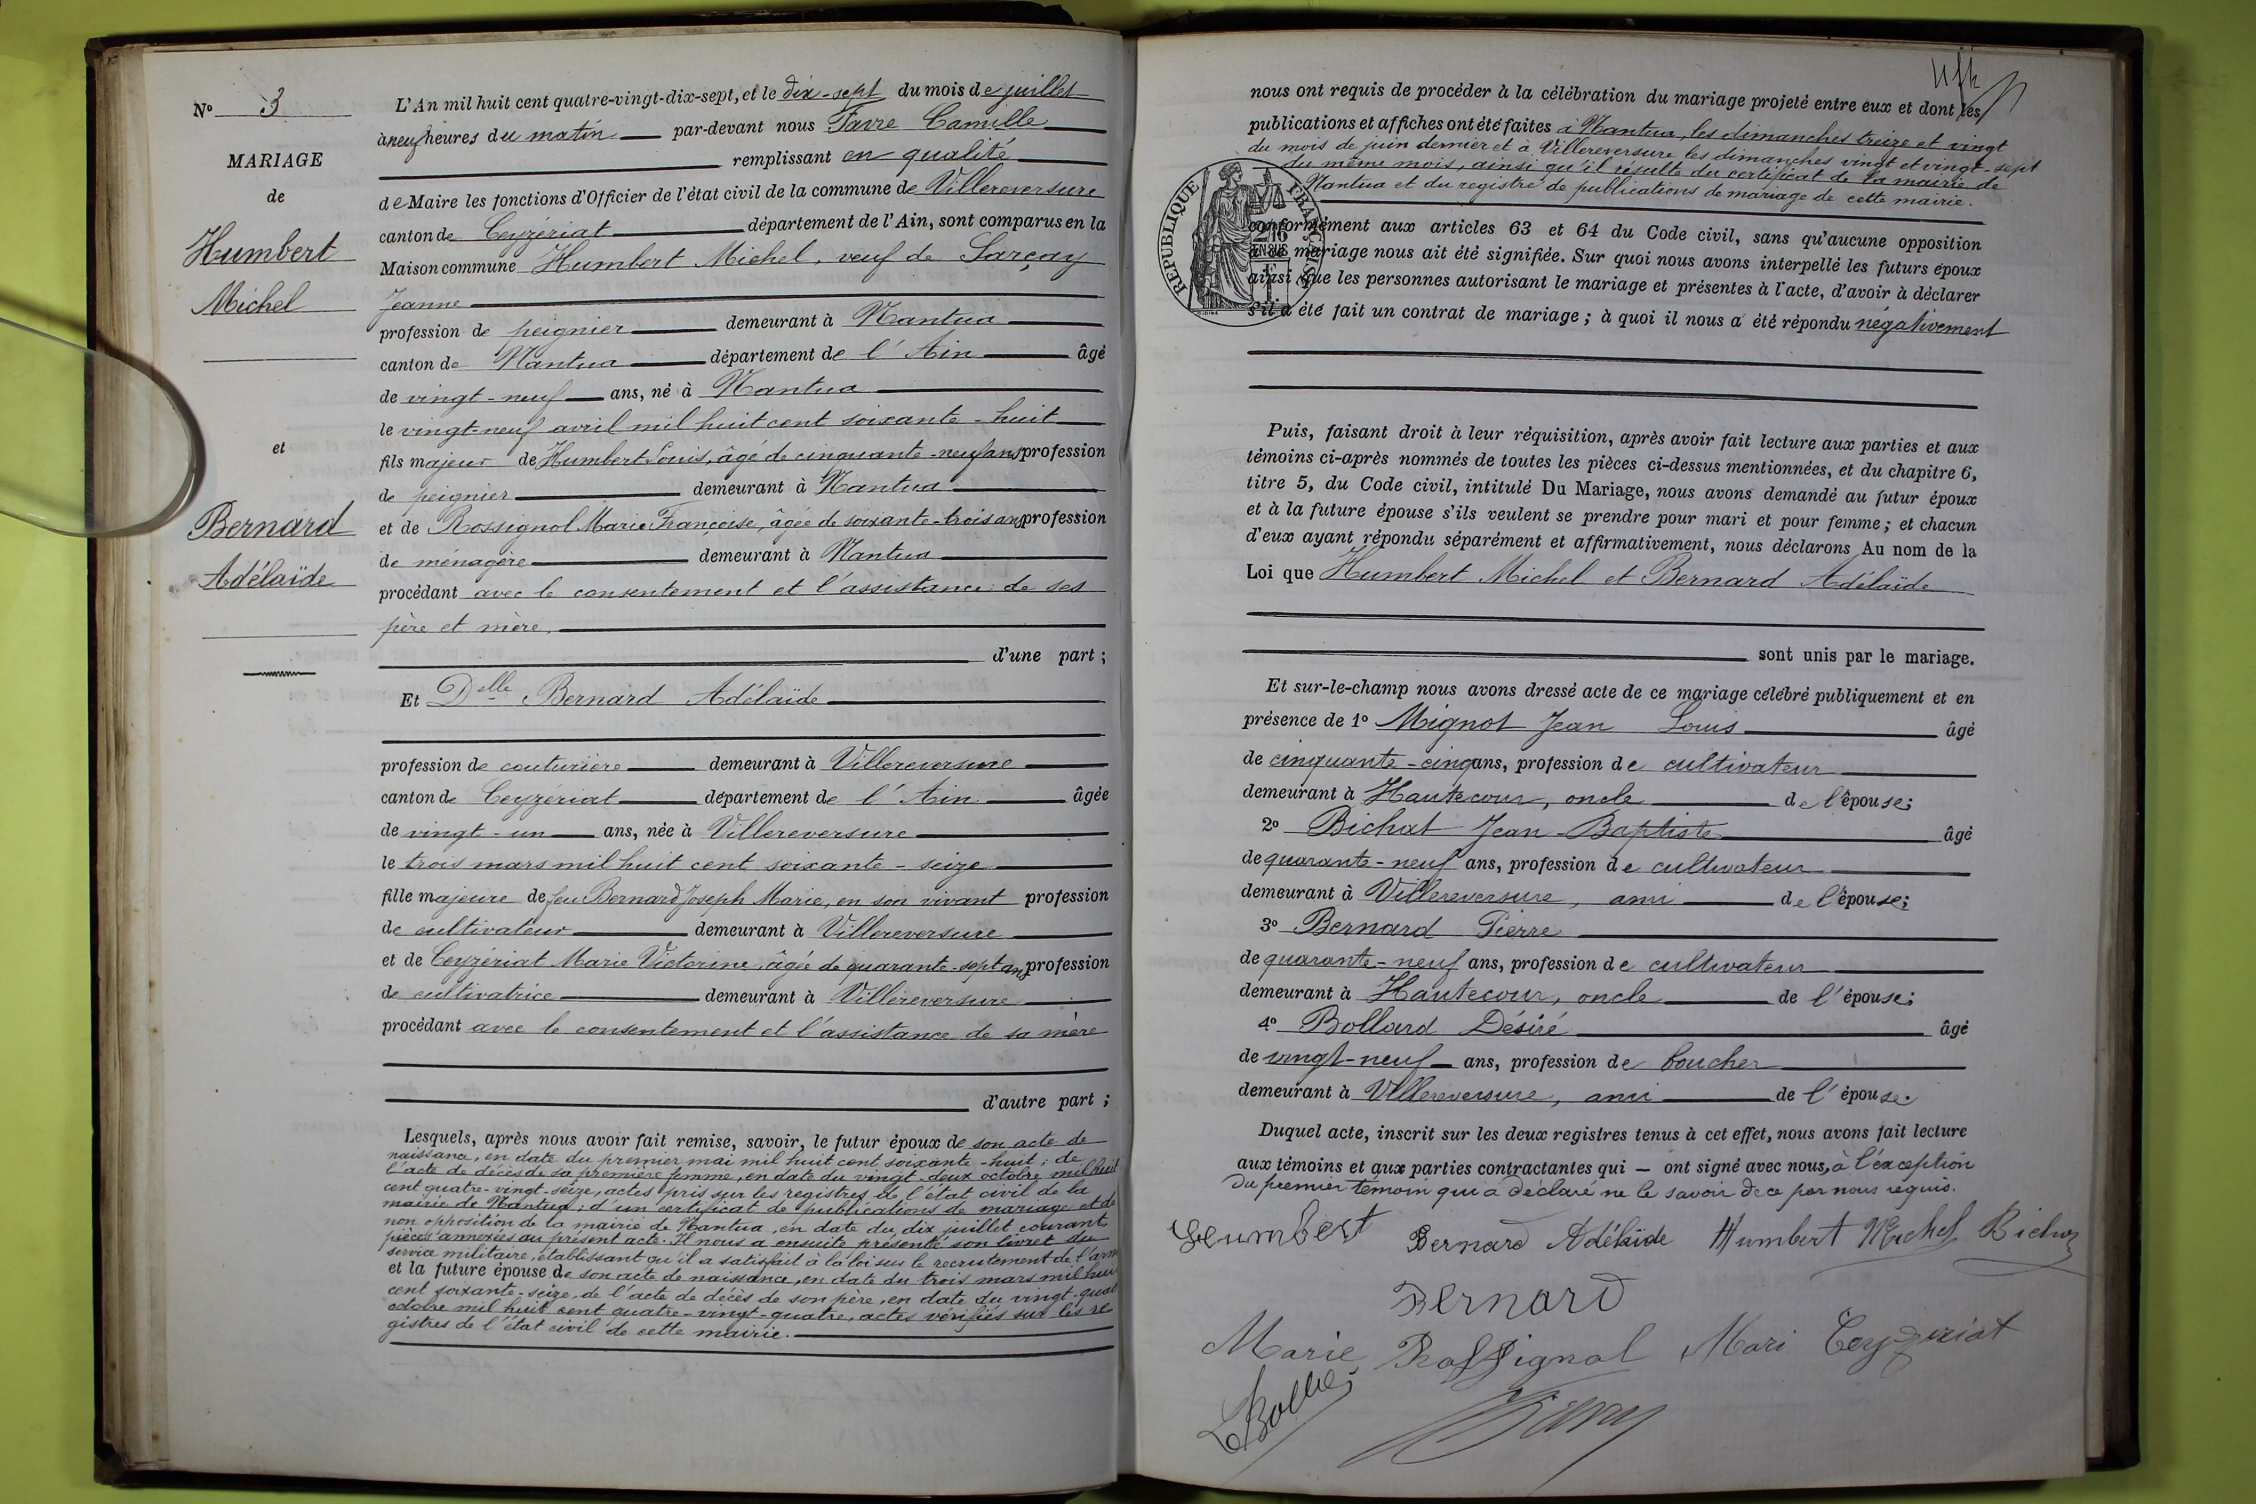 N° 3
MARIAGE
de
Humbert
Michel
et
Bernard
Adélaïde
L'An mil huit cent quatre-vingt-dix-sept, et le dix-sept du mois de juillet
à neuf heures du matin par-devant nous Favre Camille
remplissant en qualité
de Maire les fonctions d'Officier de l'état civil de la commune de Villereversure
canton de Ceyzériat département de l'Ain, sont comparus en la
Maison commune Humbert Michel, veuf de Sarçay
Jeanne
profession de peignier demeurant à Nantua
canton de Nantua département de l'Ain âgé
de vingt-neuf ans, né à Nantua
le vingt-neuf avril mil huit cent soixante-huit
fils majeur de Humbert Louis, âgé de cinquante-neuf ans profession
de peignier demeurant à Nantua
et de Rossignol Marie Françoise, âgée de soixante-trois ans profession
de ménagère demeurant à Nantua
procédant avec le consentement et l'assistance de ses
père et mère.
d'une part ;
Et Delle Bernard Adélaïde
profession de couturière demeurant à Villereversure
canton de Ceyzériat département de l'Ain âgée
de vingt-un ans, née à Villereversure
le trois mars mil huit cent soixante-seize
fille majeure de feu Bernard Joseph Marie, en son vivant profession
de cultivateur demeurant à Villereversure
et de Ceyzériat Marie Victorine, âgée de quarante-sept ans profession
de cultivatrice demeurant à Villereversure
procédant avec le consentement et l'assistance de sa mère
d'autre part ;
Lesquels, après nous avoir fait remise, savoir, le futur époux de son acte de
naissance, en date du premier mai mil huit cent soixante-huit ; de
l'acte de décès de sa première femme, en date du vingt-deux octobre mil huit
cent quatre-vingt-seize, actes pris sur les registres de l'état civil de la
mairie de Nantua ; d'un certificat de publications de mariage et de
non opposition de la mairie de Nantua, en date du dix juillet courant
pièces annexées au présent acte. Il nous a ensuite présenté son livret du
service militaire, établissant qu'il a satisfait à la loi sur le recrutement de l'arm
et la future épouse de son acte de naissance, en date du trois mars mil hui
cent soixante-seize, de l'acte de décès de son père, en date du vingt-quat
octobre mil huit cent quatre-vingt-quatre, actes vérifiés sur les re
gistres de l'état civil de cette mairie.
nous ont requis de procéder à la célébration du mariage projeté entre eux et dont les
publications et affiches ont été faites à Nantua, les dimanches treize et vingt
du mois de juin dernier et à Villereversure les dimanches vingt et vingt-sept
du même mois, ainsi qu'il résulte du certificat de la mairie de
Nantua et du registre de publications de mariage de cette mairie.
RÉPUBLIQUE FRANÇAISE
conformément aux articles 63 et 64 du Code civil, sans qu'aucune opposition
à ce mariage nous ait été signifiée. Sur quoi nous avons interpellé les futurs époux
ainsi que les personnes autorisant le mariage et présentes à l'acte, d'avoir à déclarer
s'il a été fait un contrat de mariage ; à quoi il nous a été répondu négativement
Puis, faisant droit à leur réquisition, après avoir fait lecture aux parties et aux
témoins ci-après nommés de toutes les pièces ci-dessus mentionnées, et du chapitre 6,
titre 5, du Code civil, intitulé Du Mariage, nous avons demandé au futur époux
et à la future épouse s'ils veulent se prendre pour mari et pour femme ; et chacun
d'eux ayant répondu séparément et affirmativement, nous déclarons Au nom de la
Loi que Humbert Michel et Bernard Adélaïde
sont unis par le mariage.
Et sur-le-champ nous avons dressé acte de ce mariage célébré publiquement et en
présence de 1° Mignot Jean Louis âgé
de cinquante-cinq ans, profession de cultivateur
demeurant à Hautecour, oncle de l'épouse ;
2° Bichat Jean-Baptiste âgé
de quarante-neuf ans, profession de cultivateur
demeurant à Villereversure, ami de l'épouse ;
3° Bernard Pierre
de quarante-neuf ans, profession de cultivateur
demeurant à Hautecour, oncle de l'épouse ;
4° Bollard Désiré âgé
de vingt-neuf ans, profession de boucher
demeurant à Villereversure, ami de l'épouse.
Duquel acte, inscrit sur les deux registres tenus à cet effet, nous avons fait lecture
aux témoins et aux parties contractantes qui — ont signé avec nous, à l'exception
du premier témoin qui a déclaré ne le savoir de ce par nous requis.
Humbert Bernard Adélaïde Humbert Michel Bichat
Bernard
Marie Rossignol Mari Ceyzeriat